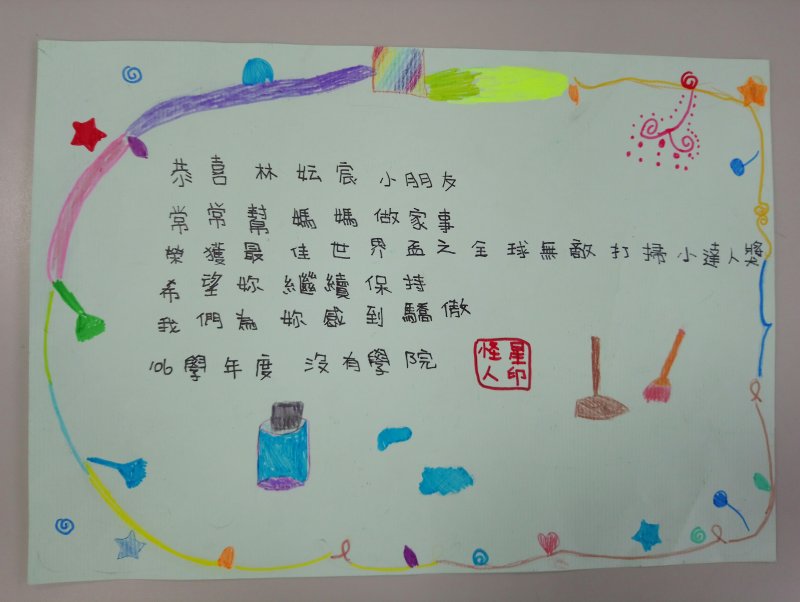 恭喜林妘宸小朋友
常常幫媽媽做家事
榮獲最佳世界盃之全球無敵打掃小達人獎
希望妳繼續保持
我們為妳感到驕傲
106學年度 沒有學院
怪星人印